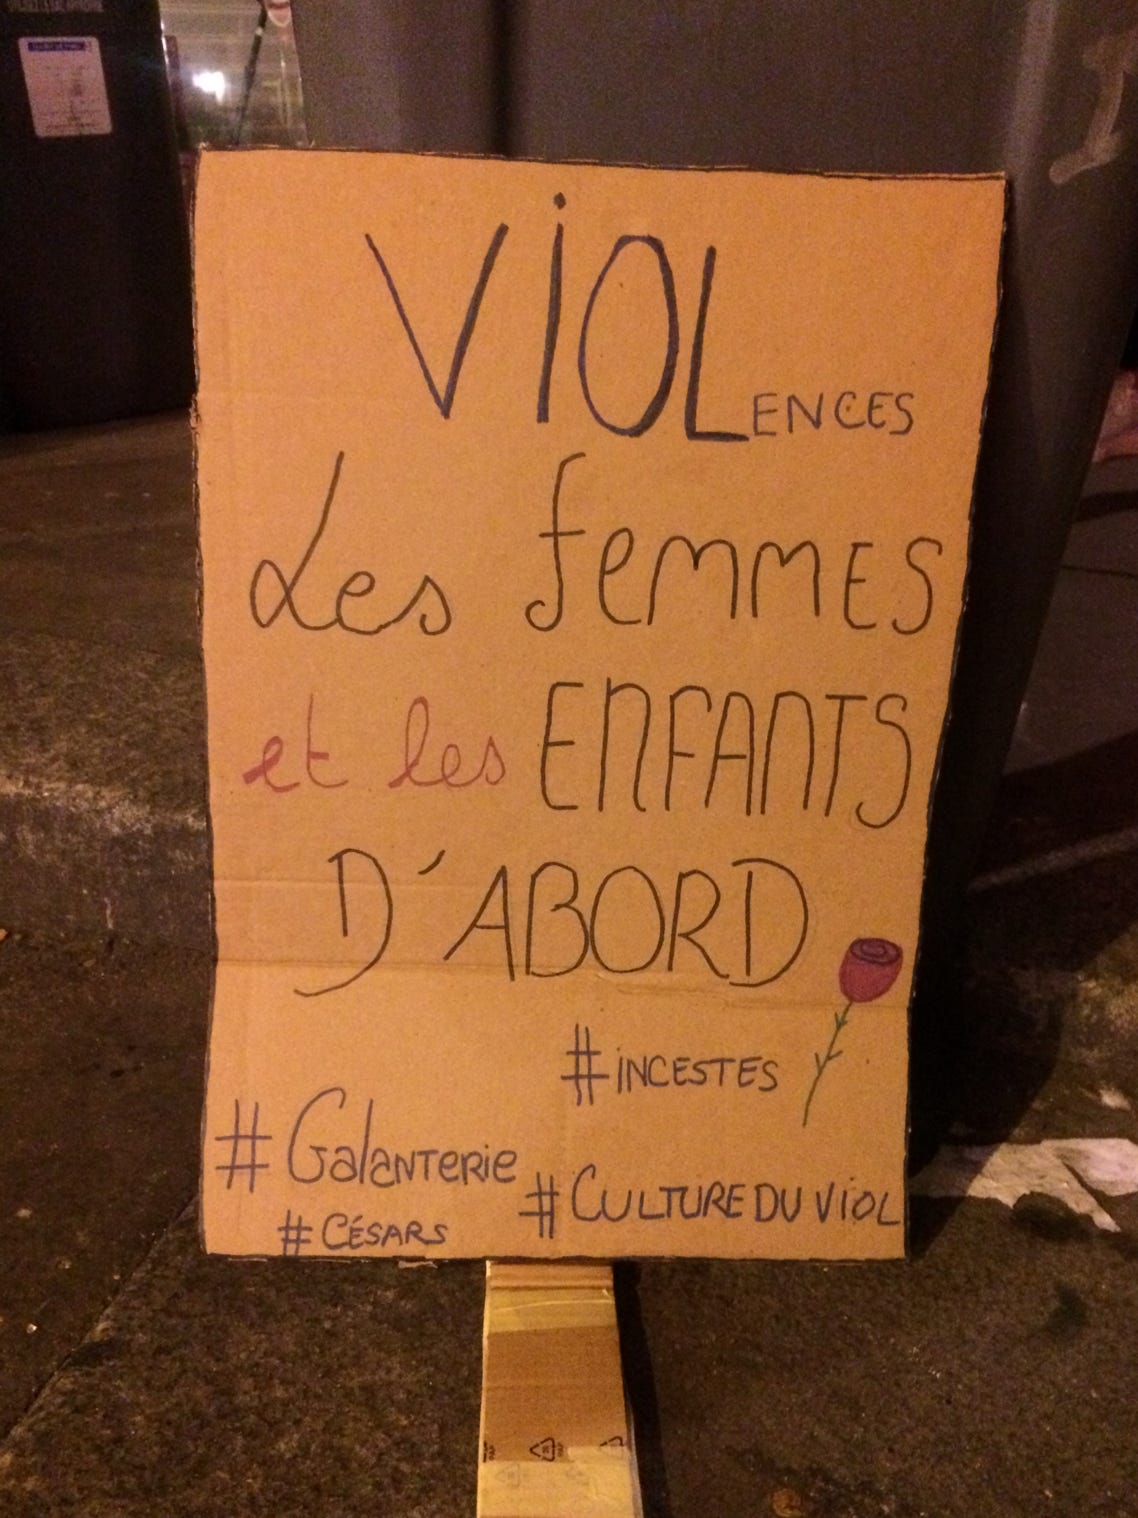 ViOLENCES
Les femmES
et les ENFANTS
D'ABORD
#iNCESTES
#GalanTERie
#CULTURE DU ViOL
#CÉSARS